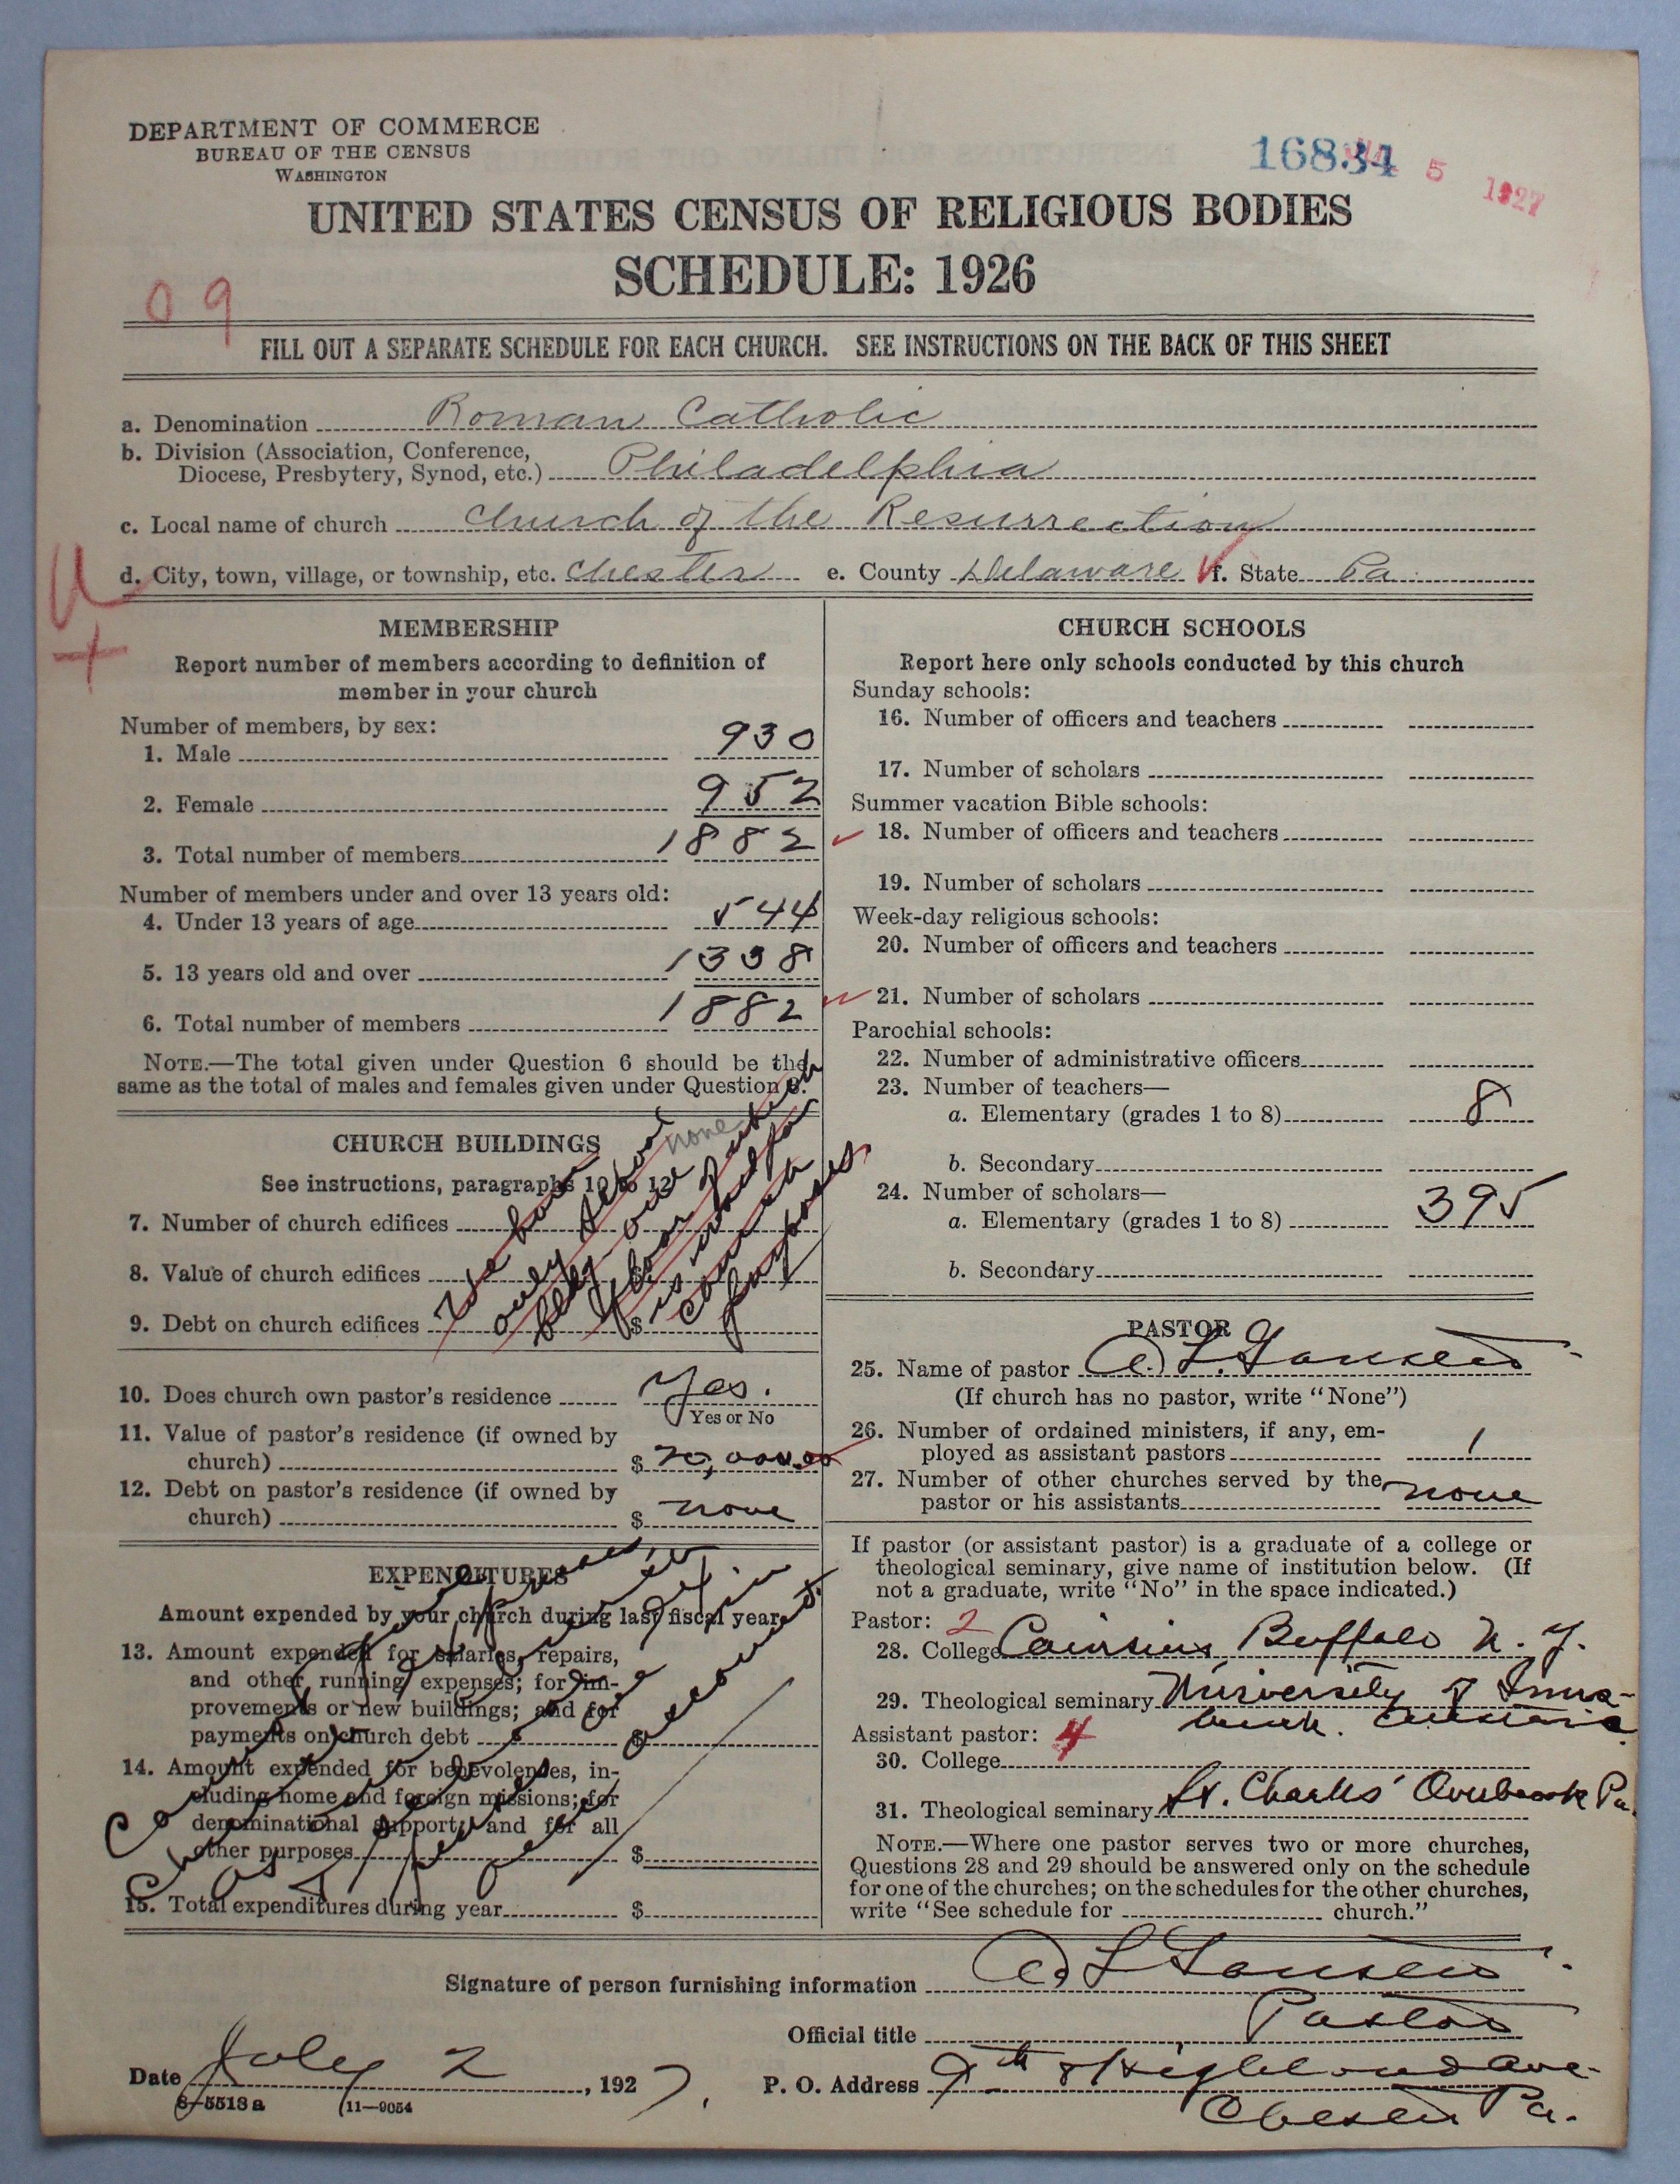 DEPARTMENT OF COMMERCE
BUREAU OF THE CENSUS
WASHINGTON
16834
5 1927
UNITED STATES CENSUS OF RELIGIOUS BODIES
SCHEDULE: 1926
09
FILL OUT A SEPARATE SCHEDULE FOR EACH CHURCH. SEE INSTRUCTIONS ON THE BACK OF THIS SHEET
a. Denomination Roman Catholic
b. Division (Association, Conference,
Diocese, Presbytery, Synod, etc.) Philadelphia
c. Local name of church Church of the Resurrection
d. City, town, village, or township, etc. Chester e. County Delaware f. State Pa
MEMBERSHIP
Report number of members according to definition of
member in your church
Number of members, by sex:
1. Male 930
2. Female 952
3. Total number of members 1882
Number of members under and over 13 years old:
4. Under 13 years of age 544
5. 13 years old and over 1338
6. Total number of members 1882
NOTE.—The total given under Question 6 should be the
same as the total of males and females given under Question 3.
CHURCH BUILDINGS
none
See instructions, paragraphs 10 to 12
7. Number of church edifices
8. Value of church edifices $
9. Debt on church edifices $
We have
only school
bldg one
floor of which
is used for
church
purposes
10. Does church own pastor's residence Yes.
Yes or No
11. Value of pastor's residence (if owned by
church) $ 20,000.00
12. Debt on pastor's residence (if owned by
church) $ none
EXPENDITURES
Amount expended by your church during last fiscal year
13. Amount expended for salaries, repairs,
and other running expenses; for im-
provements or new buildings; and for
payments on church debt $
14. Amount expended for benevolences, in-
cluding home and foreign missions; for
denominational support; and for all
other purposes $
15. Total expenditures during year $
CHURCH SCHOOLS
Report here only schools conducted by this church
Sunday schools:
16. Number of officers and teachers
17. Number of scholars
Summer vacation Bible schools:
18. Number of officers and teachers
19. Number of scholars
Week-day religious schools:
20. Number of officers and teachers
21. Number of scholars
Parochial schools:
22. Number of administrative officers
23. Number of teachers—
a. Elementary (grades 1 to 8) 8
b. Secondary
24. Number of scholars—
a. Elementary (grades 1 to 8) 395
b. Secondary
PASTOR
25. Name of pastor A. L. Gansen
(If church has no pastor, write "None")
26. Number of ordained ministers, if any, em-
ployed as assistant pastors 1
27. Number of other churches served by the
pastor or his assistants none
If pastor (or assistant pastor) is a graduate of a college or
theological seminary, give name of institution below. (If
not a graduate, write "No" in the space indicated.)
Pastor: 2
28. College Cainsius Buffalo N. Y.
29. Theological seminary University of Inns-
bruck. Austria
Assistant pastor: 4
30. College
31. Theological seminary St. Charles' Overbrook Pa.
NOTE.—Where one pastor serves two or more churches,
Questions 28 and 29 should be answered only on the schedule
for one of the churches; on the schedules for the other churches,
write "See schedule for church."
Signature of person furnishing information A L Gansen
Official title Pastor
Date July 2, 1927. P. O. Address 9th & Highland Ave.
Chester Pa.
8-5513a 11—9054